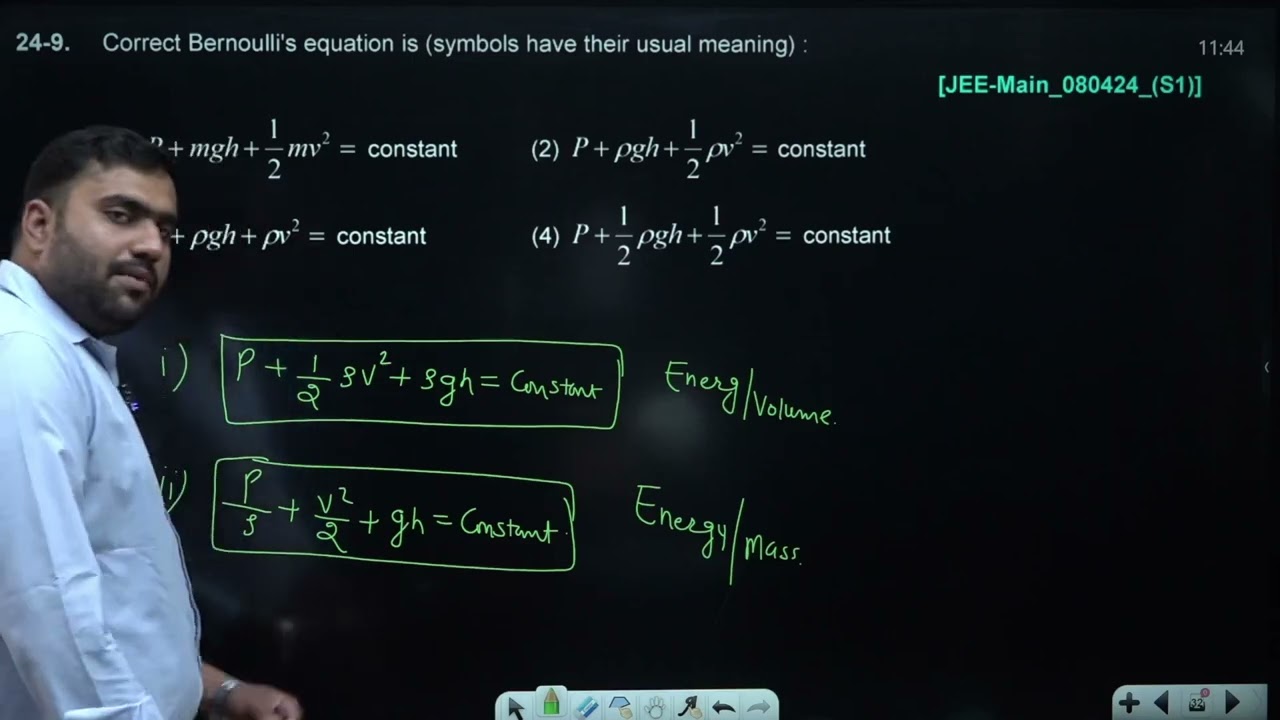 24-9. Correct Bernoulli's equation is (symbols have their usual meaning) :
11:44
[JEE-Main_080424_(S1)]
P + mgh + 1/2 mv² = constant
(2) P + ρgh + 1/2 ρv² = constant
+ ρgh + ρv² = constant
(4) P + 1/2 ρgh + 1/2 ρv² = constant
i) P + 1/2 ρv² + ρgh = Constant Energ/Volume.
ii) P/ρ + v²/2 + gh = Constant. Energy/Mass.
32